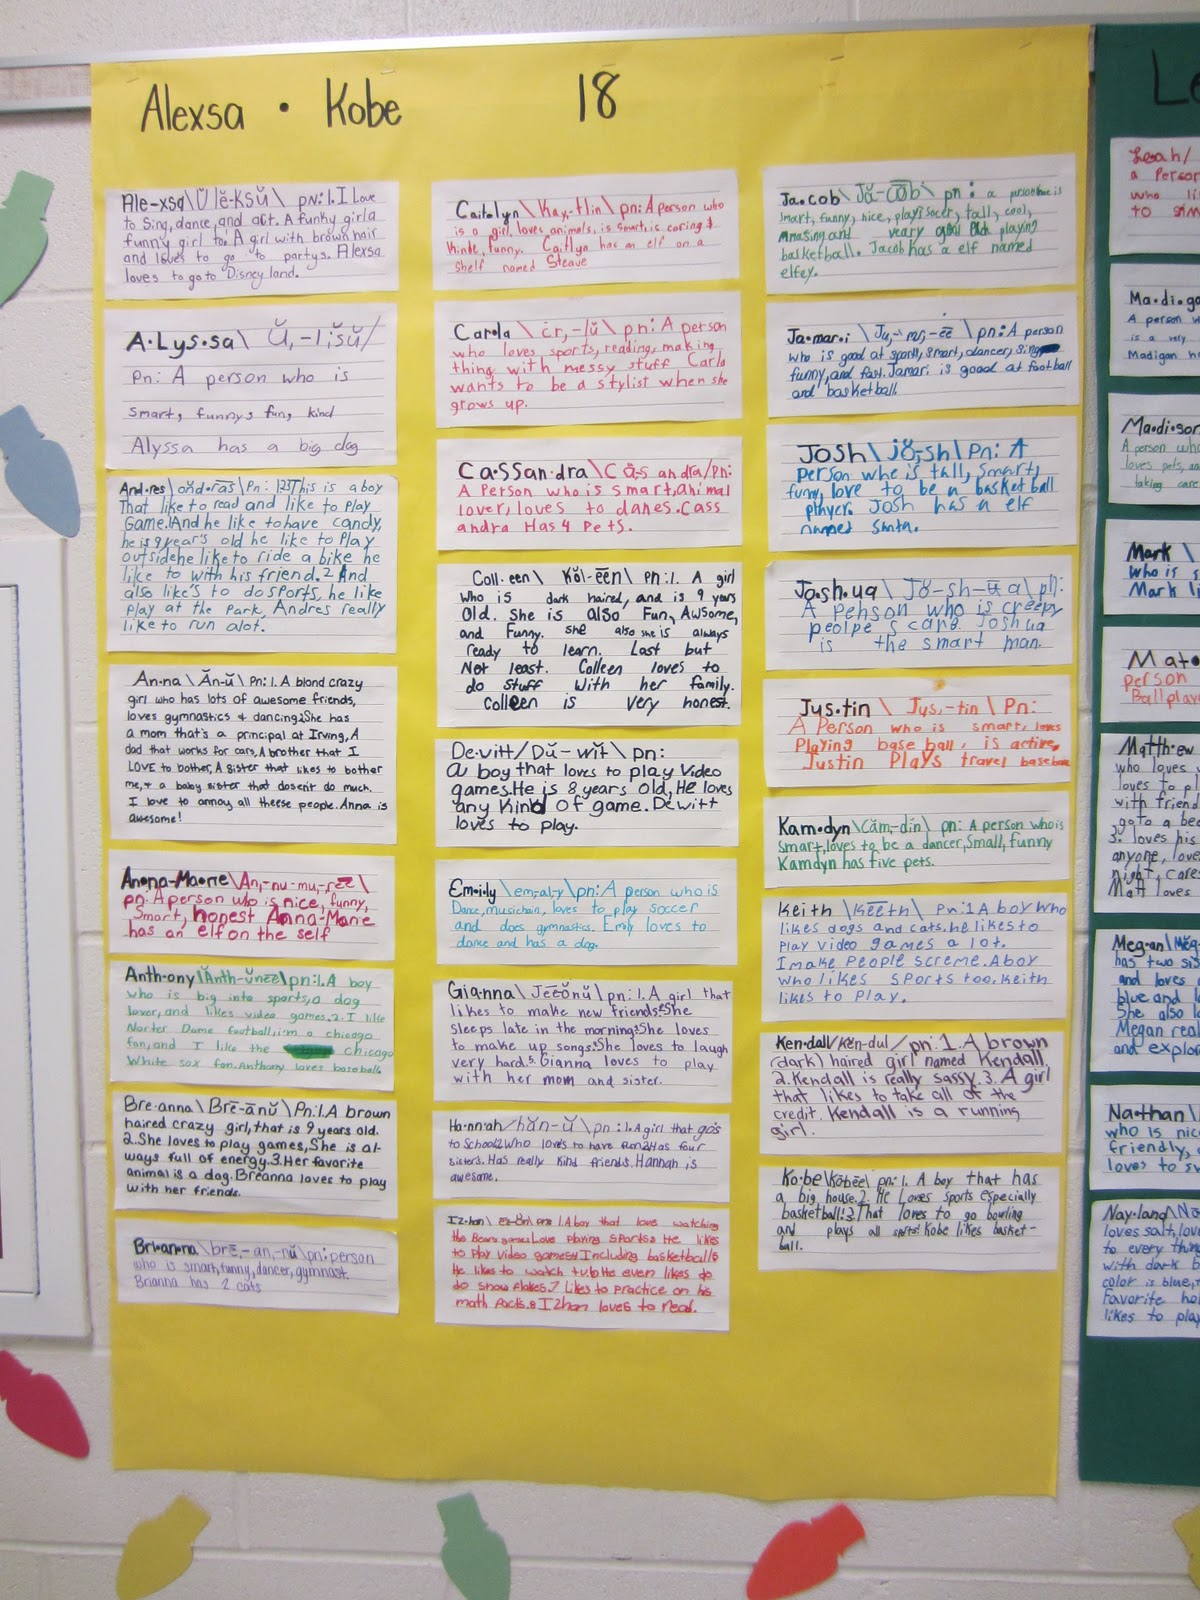 Alexsa • Kobe 18
Ale-xsa\Ŭ lĕ-Ksŭ\ pn:1.I Love
to Sing, dance, and act. A funky girl a
funny girl to. A girl with brown hair
and loves to go to partys. Alexsa
loves to go to Disney land.
A•Lys•sa\ Ŭ,-lĭsŭ/
pn: A person who is
smart, funny, fun, kind
Alyssa has a big dog
And•res\ ŏnd•rās\ Pn: This is a boy
That like to read and like to Play
Game. And he like to have candy,
he is 9 year's old he like to Play
outside he like to ride a bike he
like to with his friend.2 And
also like's to do sports, he like
Play at the Park, Andres really
like to run alot.
An•na\ Ăn-ŭ\ Pn:1.A blond crazy
girl who has lots of awesome friends,
loves gymnastics & dancing2She has
a mom that's a principal at Irving, A
dad that works for cars, A brother that I
LOVE to bother, A sister that likes to bother
me, + a baby sister that dosen't do much.
I love to annoy all theese people. Anna is
awesome!
An•na-Ma•rie\An,-nu-mu,-rēē\
pn: A person who is nice, funny,
Smart, honest Anna-Marie
has an elf on the self
Anth•ony\Ănth-ŭnēē\pn:1.A boy
who is big into sports, a dog
lover, and likes video games.2.I like
Norter Dame football, i'm a chicago
fan, and I like the chicago
White sox fan. Anthony loves baseball.
Bre•anna\Brē-ānŭ\Pn:1.A brown
haired crazy girl, that is 9 years old.
2.She loves to play games, She is al-
ways full of energy.3.Her favorite
animal is a dog. Breanna loves to play
with her friends.
Bri•an•na\brē-an,-nŭ\pn: person
who is smart, funny, dancer, gymnast.
Brianna has 2 cats
Cait•lyn\Kay,-tlin\ pn: A person who
is a girl, loves animals, is smart, is caring &
Kinde, funny. Caitlyn has an elf on a
shelf named Steave
Car•la\ cr,-lŭ\ pn: A person
who loves sports, reading, making
thing with messy stuff Carla
wants to be a stylist when she
grows up.
Ca•ssan•dra\Căs andra/pn:
A Person who is smart, animal
lover, loves to danes. Cass
andra Has 4 Pets.
Coll•een\ Kŏl-ēēn\ pn:1. A girl
who is dark haired, and is 9 years
Old. She is also Fun, Awsome,
and Funny. She also she is always
ready to learn. Last but
Not least. Colleen loves to
do stuff with her family.
Colleen is very honest.
De•vitt/Dŭ-wĭt\ pn:
a boy that loves to play Video
games. He is 8 years old, He loves
any kind of game. Dewitt
loves to play.
Em•ily\em,al-y\pn: A person who is
Dance, musichain, loves to play soccer
and does gymnastics. Emily loves to
dance and has a dog.
Gia•nna\ Jēēŏnŭ\ pn:1.A girl that
likes to make new friends.2She
sleeps late in the morning.3She loves
to make up songs.4She loves to laugh
very hard.5.Gianna loves to play
with her mom and sister.
Ha•nnah/hăn-ŭ\ pn:1.A girl that go's
to School.2Who loves to have fun.3Has four
sisters. Has really kind friends. Hannah is
awesome.
Iz•han\ 1.A boy that love watching
the Bears games Love Playing Sports. He likes
to Play Video games. Including basketball
He likes to watch He even likes do
do Snow flakes.7 likes to practice on his
math facts.8 Izhan loves to read.
Ja•cob\ Jā-cōb\ pn: a person he is
smart, funny, nice, plays soccer, tall, cool,
Amazing and veary good playing
basketball. Jacob has a elf named
elfey.
Ja•mar•i\Ju,-mar,-ēē \pn: A person
who is good at sports, smart, dancer, singer
funny, and fast. Jamari is goood at football
and basketball.
Josh\jŏ,sh\Pn: A
Person whe is tall, smart,
funny, love to be a basket ball
player. Josh has a elf
named Santa.
Jo•sh•ua\Jŏ-sh-ū a\pn:
A Pehson who is creepy
peolpe scare. Joshua
is the smart man.
Jus•tin\ Jus,-tin\ Pn:
A Person who is smart, loves
Playing base ball, is active,
Justin Plays travel baseball
Kam•dyn\Căm,-dín\ pn: A person who is
smart, loves to be a dancer, Small, funny
Kamdyn has five pets.
Keith \Kēēth\ Pn:1 A boy who
likes dogs and cats. he likes to
Play video games a lot.
I make people screme. A boy
who likes sports too. Keith
likes to Play.
Ken•dall/Kĕn-dul/pn:1.A brown
(dark) haired girl named Kendall
2.Kendall is really sassy.3.A girl
that likes to take all of the
credit. Kendall is a running
girl.
Ko•be\Kōbēē\ pn:1. A boy that has
a big house.2. He Loves sports especially
basketball!3.That loves to go bowling
and plays all sports! Kobe likes basket-
ball.
Le
Leah/
a Person
who li
to sim
Ma•di•ga
A person w
is a very
Madigan h
Ma•di•son
A person who
loves pets, an
taking care
Mark \
who is s
Mark li
Mat
person
Ball play
Matth•ew
who loves
loves to pl
with friend
go to a be
3. loves his
anyone, love
night, cares
Matt loves
Meg•an\Mĕg
has two sis
and loves
blue and
She also lo
Megan rea
and explor
Na•than\
who is nice
friendly,
loves to sw
Nay•land\Nā
loves salt, lov
to every thin
with dark b
color is blue,
Favorite hol
likes to play